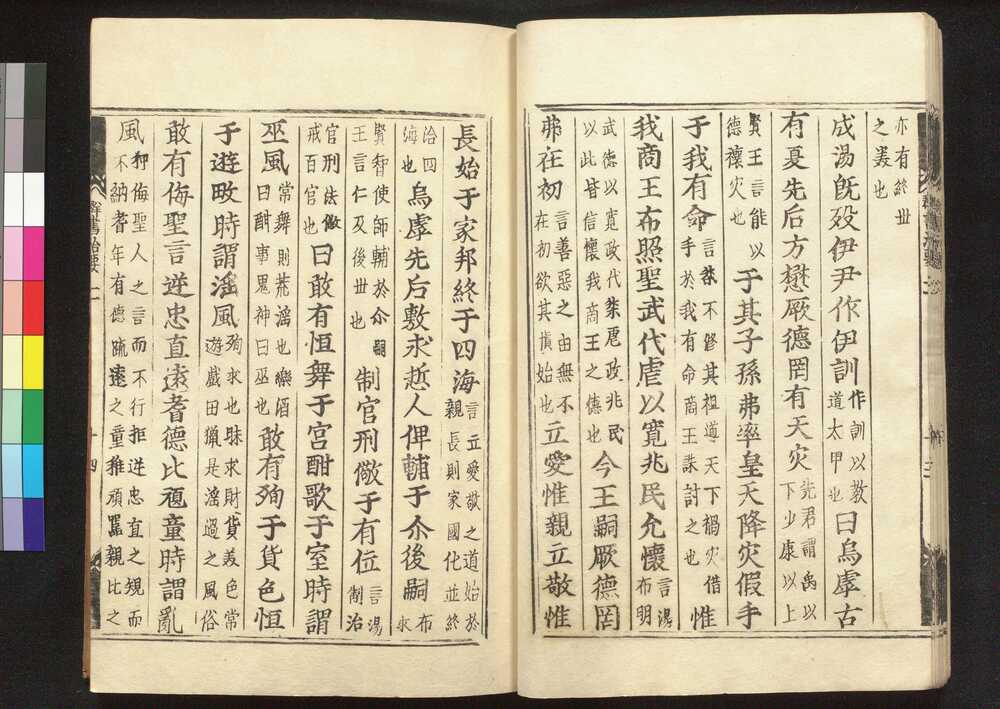 亦有終丗之羙也
成湯旣歿伊尹作伊訓作訓以教道太甲也曰烏虖古
有夏先后方懋厥德罔有天灾先君謂禹以下少康以上
賢王言能以德禳灾也于其子孫弗率皇天降灾假手
于我有命言桀不修其祖道天下禍灾借手於我有命商王誅討之也惟
我商王布照聖武代虐以寬兆民允懷言湯布明
武德以寬政代桀虐政兆民以此皆信懷我商王之德也今王嗣厥德罔
弗在初言善惡之由無不在初欲其慎始也立愛惟親立敬惟
長始于家邦終于四海言立愛敬之道始於親長則家國化並終
洽四海也烏虖先后敷求悊人俾輔于尒後嗣布求
賢智使師輔於尒嗣王言仁及後丗也制官刑儆于有位言湯制治
官刑法儆戒百官也曰敢有恒舞于宮酣歌于室時謂
巫風常舞則荒淫也樂酒曰酣事鬼神曰巫也敢有殉于貨色恒
于遊畋時謂淫風殉求也昧求財貨美色常遊戲田獵是淫過之風俗
敢有侮聖言逆忠直遠耆德比頑童時謂亂
風狎侮聖人之言而不行拒逆忠直之規而不納耆年有德疏遠之童稚頑嚚親比之
群書治要二 十四